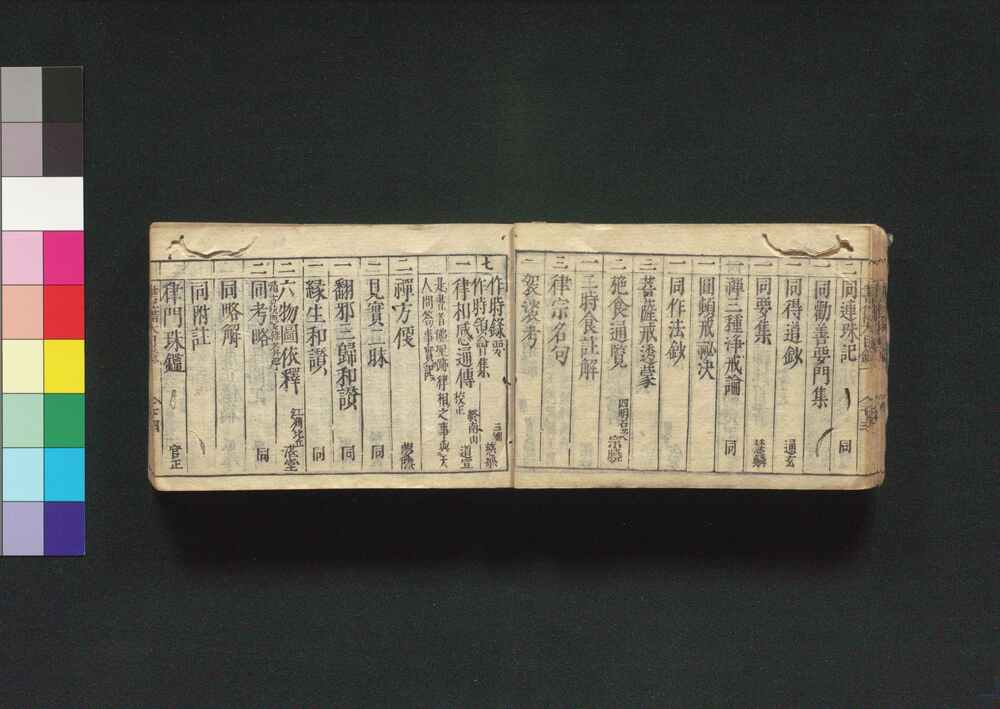 二 同連珠記 同
一 同勸善要門集
二 同得道鈔 通玄
一 同要集
一 禪三種淨戒論 同
一 圓頓戒祕决
一 同作法鈔
三 菩薩戒透蒙
二 施食通覽 四明石芝 宗曉
一 三時食註解
三 律宗名句
一 袈裟考
七 作時録要
作時領會集
一 律相感通傳 校正 終南山 道宣
是書昔佛聖跡律相之事與天
人問答事實説
二 禪方便
二 見實三昧 同
一 翻邪三歸和讃 同
一 縁生和讃 同
二 六物圖依釋
二 同考略 同
同略解
同附註
律門珠鑑 官正